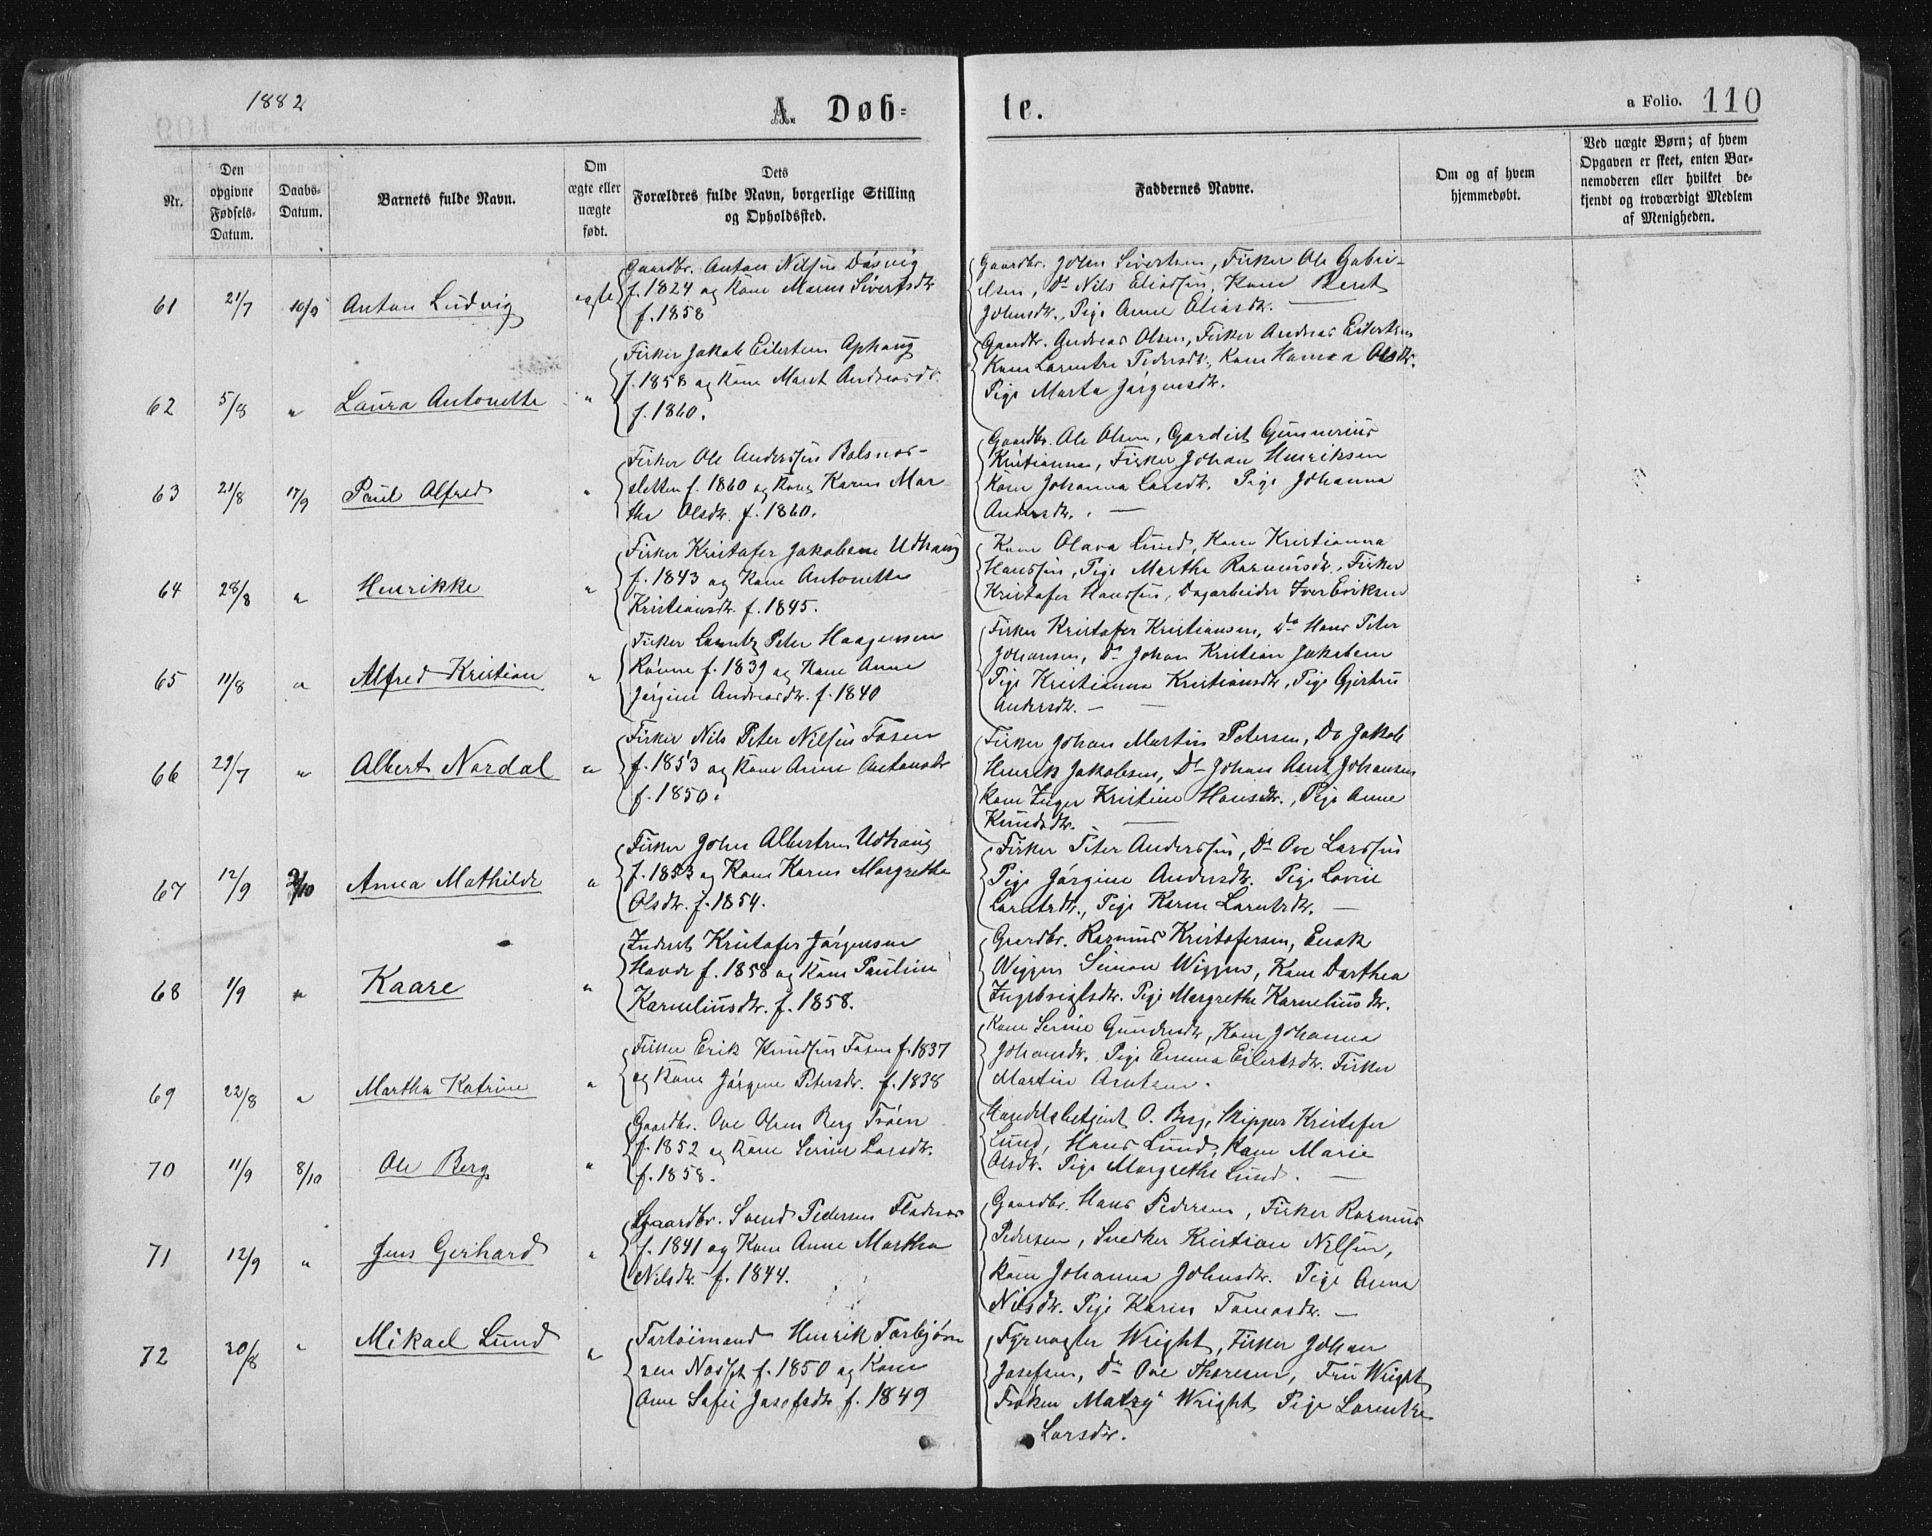 1882
A. Døb-
te.
a Folio. 110
Nr.
Den opgivne Fødsels-Datum.
Daabs-Datum.
Barnets fulde Navn.
Om ægte eller uægte født.
Dets Forældres fulde Navn, borgerlige Stilling og Opholdssted.
Faddernes Navne.
Om og af hvem hjemmedøbt.
Ved uægte Børn; af hvem Opgaven er skeet, enten Barnemoderen eller hvilket bekjendt og troværdigt Medlem af Menigheden.
61 21/7 10/9 Anton Ludvig ægte
Gaardbr. Anton Nilsen Døsvig
f. 1824 og Kone Maren Sivertsdtr
f. 1858
Gaardbr. John Sivertsen, Fisker Ole Gabri-
elsen, Do Nils Eliassen, Kone Beret
Johnsdtr., Pige Anne Eliasdtr. —
62 5/8 " Laura Antonette "
Fisker Jakob Eilertsen Ophaug
f. 1858 og Kone Maret Andreasdtr.
f. 1860.
Gaardbr. Andreas Olsen, Fisker Andreas Eilertsen
Kone Larentze Pedersdtr., Kone Hanna Olsdtr.
Pige Marta Jørgensdtr.
63 21/8 17/9 Paul Alfred "
Fisker Ole Anderssen Balsnes-
sletten f. 1860 og Kone Karen Mar
tha Olsdtr. f. 1860.
Gaardbr. Ole Olsen, Gardist Gunnerius
Kristiansen, Fisker Johan Henriksen
Kone Johanna Larsdtr. Pige Johanna
Andersdtr. —
64 28/8 " Henrikke "
Fisker Kristofer Jakobsen Udhaug
f. 1843 og Kone Antonette
Kristiansdtr. f. 1845.
Kone Olava Lund, Kone Kristianna
Hanssen, Pige Martha Rasmusdtr., Fisker
Kristofer Hanssen, Dagarbeider Iver Eriksen
65 11/8 " Alfred Kristian "
Fisker Lorentz Peter Haagensen
Rønne f. 1839 og Kone Anne
Jørgine Andreasdtr. f. 1840
Fisker Kristofer Kristiansen, Do Hans Peter
Johansen, Do Johan Kristian Jakobsen
Pige Kristianna Kristiansdtr., Pige Gjertru
Andersdtr. — —
66 29/7 " Albert Nordal "
Fisker Nils Peter Nilsen Fosen
f. 1853 og Kone Anne Antonsdtr
f. 1850.
Fisker Johan Martin Petersen, Do Jakob
Henrik Jakobsen, Do Johan Arnt Johansen
Kone Inger Kristine Hansdtr., Pige Anne
Knudsdtr. —
67 12/9 2/10 Anna Mathilde "
Fisker John Albertsen Udhaug
f. 1853 og Kone Karen Margrethe
Olsdtr. f. 1854.
Fisker Peter Anderssen, Do Ove Larssen
Pige Jørgine Andersdtr. Pige Lovise
Larntzdtr., Pige Karen Larntzdtr. —
68 1/9 " Kaare "
Inderst Kristofer Jørgensen
Hovde f. 1858 og Kone Pauline
Kornelius dtr. f. 1858.
Gaardbr. Rasmus Kristofersen, Enok
Wiggen Simon Wiggen, Kone Dorthea
Ingebrigtsdtr. Pige Margrethe Kornelius dtr.
69 22/8 " Martha Katrine "
Fisker Erik Knudsen Fosen f. 1837
og Kone Jørgine Petersdtr. f. 1838
Kone Serine Gundersdtr., Kone Johanna
Johansdtr. Pige Emma Eilertsdtr. Fisker
Martin Arntsen.
70 11/9 8/10 Ole Berg "
Gaardbr. Ove Olsen Berg Trøen
f. 1852 og Kone Serine Larsdtr.
f. 1858.
Handelsbetjent O. Berg, Skipper Kristofer
Lund, Hans Lund, Kone Marie
Olsdtr. Pige Margrethe Lund. —
71 12/9 " Jens Gerhard "
Gaardbr. Svend Pedersen Fladnes
f. 1841 og Kone Anne Martha
Nilsdtr. f. 1844.
Gaardbr. Hans Pedersen, Fisker Rasmus
Pedersen, Snedker Kristian Nilsen,
Kone Johanna Johnsdtr. Pige Anna
Nilsdtr. Pige Karen Tomasdtr. —
72 20/8 " Mikael Lund "
Tartøimand Henrik Torbjørn
sen f. 1850 og Kone
Ane Sofie Josefsdtr f. 1849
Fyrvogter Wright, Fisker Johan
Josefsen, Do Ove Thoresen, Fru Wright
Frøken Matzy Wright Pige Larentze
Larsdtr.